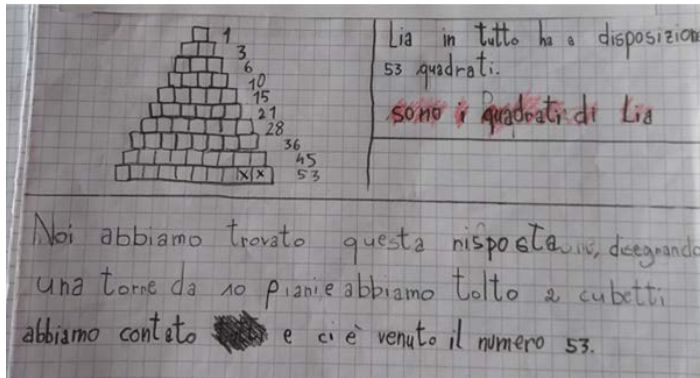 1
3
6
10
15
21
28
36
45
x x 53
Lia in tutto ha a disposizione
53 quadrati.
sono i quadrati di Lia
Noi abbiamo trovato questa risposta disegnando
una torre da 10 piani e abbiamo tolto 2 cubetti
abbiamo contato e ci è venuto il numero 53.